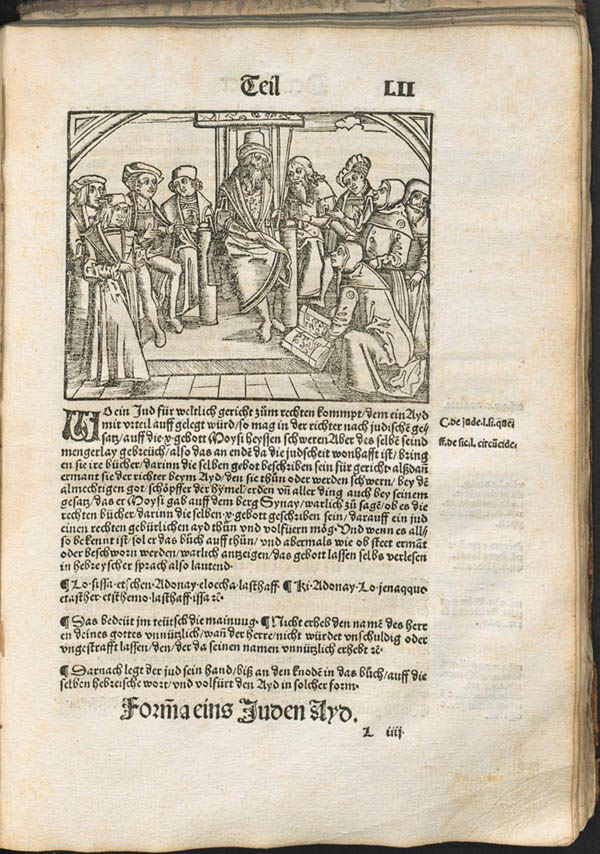 Teil LII
WO ein Jud für weltlich gericht zům rechten kompt/dem ein Ayd
mit vrteil auff gelegt würd/so mag in der richter nach jüdische ge⸗
satz/auff die .x. gebott Moysi heyssen schweren Aber des selbē seind
mengerlay gebreüch/also das an endē da die judscheit wonhafft ist/bring
en sie ire bücher/darinn die selben gebot beschriben sein für gericht. alßdañ
ermant sie der richter beym Ayd/den sie thün oder werden schwern/bey dē
almechtigen got/schöpffer der hymel/erden vñ aller ding auch bey seinem
gesatz/das er Moysi gab auff dem berg Synay/warlich zů sagē/ob es die
rechten bücher/darinn die selben .x. gebott geschriben sein/darauff ein jud
einen rechten gebürlichen ayd thün vnd volfüern mög. Vnd wenn es all
so bekennt ist/sol er das bůch auff thün/vnd abermals wie ob steet ermāt
oder beschworn werden/warlich antzeigen/das gebort lassen selbs verlesen
in hebreyscher sprach also lautend.
C. de jude. l. si. quei
ff. de sic. l. circūcide.
¶ Lo. sissa. etschen. Adonay. eloecha. lasthaff. ¶ Ki. Adonay. Lo. jenaqque
etasther. etisthemo. lasthaff. issa ꝛc.
¶ Das bedeüt jm teütsch die mainuug. ¶ Nicht erheb den namē des herr
en deines gottes vnnützlich/wañ der herre/nicht würdet vnschuldig oder
vngestrafft lassen/den/der da seinen namen vnnützlich erhebt ꝛc.
¶ Darnach legt der jud sein hand/biß an den knodē in das bůch/auff die
selben hebreische wort/vnd volfürt den Ayd in solcher form.
Form̄a eins Juden Ayd.
L iiij